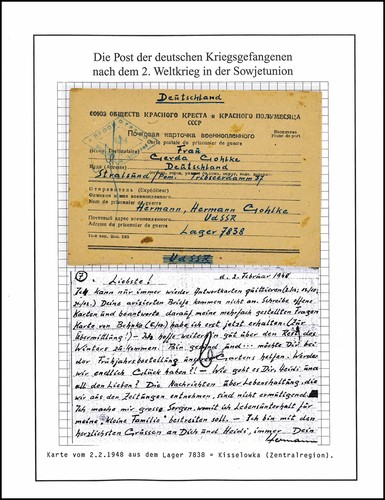 Die Post der deutschen Kriegsgefangenen
nach dem 2. Weltkrieg in der Sowjetunion
Deutschland
СОЮЗ ОБЩЕСТВ КРАСНОГО КРЕСТА и КРАСНОГО ПОЛУМЕСЯЦА
СССР
Почтовая карточка военнопленного
Carte postale du prisonnier de guerre
Бесплатно
Franc de port
Кому (Destinataire) Frau
Gerda Gohlke
Куда (Adresse) Deutschland
Stralsund/Pom. Tribseerdamm
Отправитель (Expéditeur)
Фамилия и имя военнопленного
Nom du prisonnier de guerre
Hermann, Hermann Gohlke
Почтовый адрес военнопленного
UdSSR
Adresse du prisonnier de guerre
Lager 7838
UdSSR
7 Liebste! d. 2. Februar 1948
Ich kann nur immer wieder Antwortkarten quittieren
Deine avisierten Briefe kommen nicht an. Schreibe offene
Karten und beantworte darauf meine mehrfach gestellten Fragen
Karte von habe ich erst jetzt erhalten. (Zur
Übermittlung!) - Ich hoffe weiterhin gut über den Rest des
Winters zu kommen! Bin gesund und möchte Dir bei
der Frühjahrsbestellung des Gartens helfen. Werden
wir endlich Glück haben?! - Wie geht es Dir, Heidi und
all den Lieben? Die Nachrichten über Lebenshaltung, die
wir aus den Zeitungen entnehmen, sind nicht ermutigend.
Ich mache mir grosse Sorgen, womit ich Lebensunterhalt für
meine "kleine Familie" bestreiten soll. - Ich bin mit den
herzlichsten Grüssen an Dich und Heidi, immer Dein
Hermann
Karte vom 2.2.1948 aus dem Lager 7838 = Kisselowka (Zentralregion).